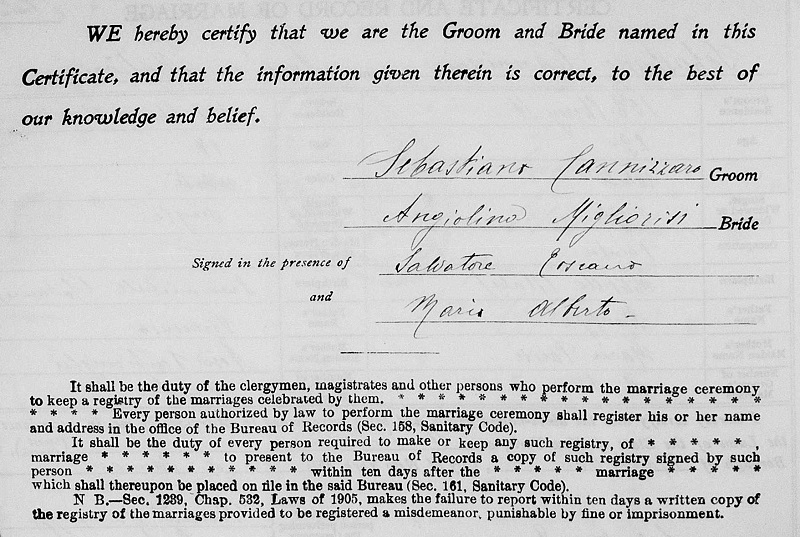 WE hereby certify that we are the Groom and Bride named in this
Certificate, and that the information given therein is correct, to the best of
our knowledge and belief.
Sebastiano Cannizzaro Groom
Angiolina Migliorisi Bride
Signed in the presence of Salvatore Toscano
and Maria Alberto
It shall be the duty of the clergymen, magistrates and other persons who perform the marriage ceremony
to keep a registry of the marriages celebrated by them. * * * * * * * * * * * * * * * * * * * *
* * * * Every person authorized by law to perform the marriage ceremony shall register his or her name
and address in the office of the Bureau of Records (Sec. 158, Sanitary Code).
It shall be the duty of every person required to make or keep any such registry, of * * * * * ,
marriage * * * * * * to present to the Bureau of Records a copy of such registry signed by such
person * * * * * * * * * * * * within ten days after the * * * * * marriage * * * * *
which shall thereupon be placed on file in the said Bureau (Sec. 161, Sanitary Code).
N B.—Sec. 1239, Chap. 532, Laws of 1905, makes the failure to report within ten days a written copy of
the registry of the marriages provided to be registered a misdemeanor, punishable by fine or imprisonment.